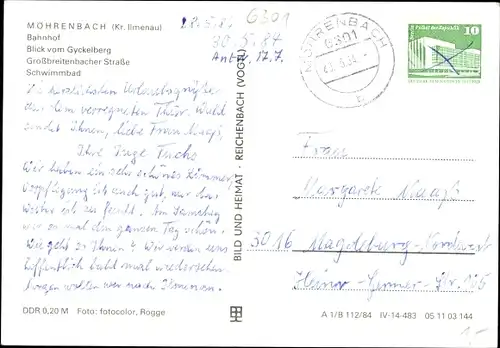 MÖHRENBACH (Kr. Ilmenau)
Bahnhof
Blick vom Gyckelberg
Großbreitenbacher Straße
Schwimmbad
28.5.8. 6301
30.5.84
Antw. 17.7.
MÖHRENBACH
6301
10
Die herzlichsten Urlaubsgrüße
aus dem verregneten Thür. Wald
sendet Ihnen, liebe Frau
Ihre Inge Fuchs
Wir haben ein sehr schönes Zimmer,
Verpflegung ist auch gut, nur das
Wetter ist zu feucht. Am Samstag
war es mal den ganzen Tag schön.
Wie geht es Ihnen? Wir werden uns
hoffentlich bald mal wiedersehen.
Morgen wollen wir nach Ilmenau.
BILD UND HEIMAT · REICHENBACH (VOGTL)
Frau
Margarete
3016 Magdeburg-Nordwest
Str. 165
DDR 0,20 M Foto: fotocolor, Rogge
A 1/B 112/84 IV-14-483 05 11 03 144
1,-